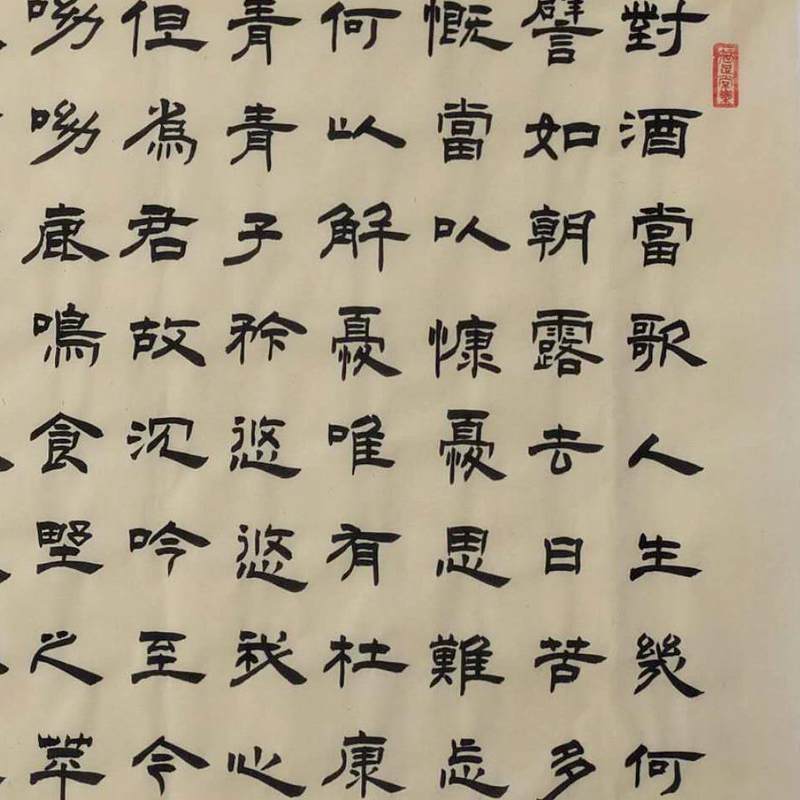 對酒當歌人生幾何
譬如朝露去日苦多
慨當以慷憂思難忘
何以解憂唯有杜康
青青子衿悠悠我心
但為君故沉吟至今
呦呦鹿鳴食野之苹